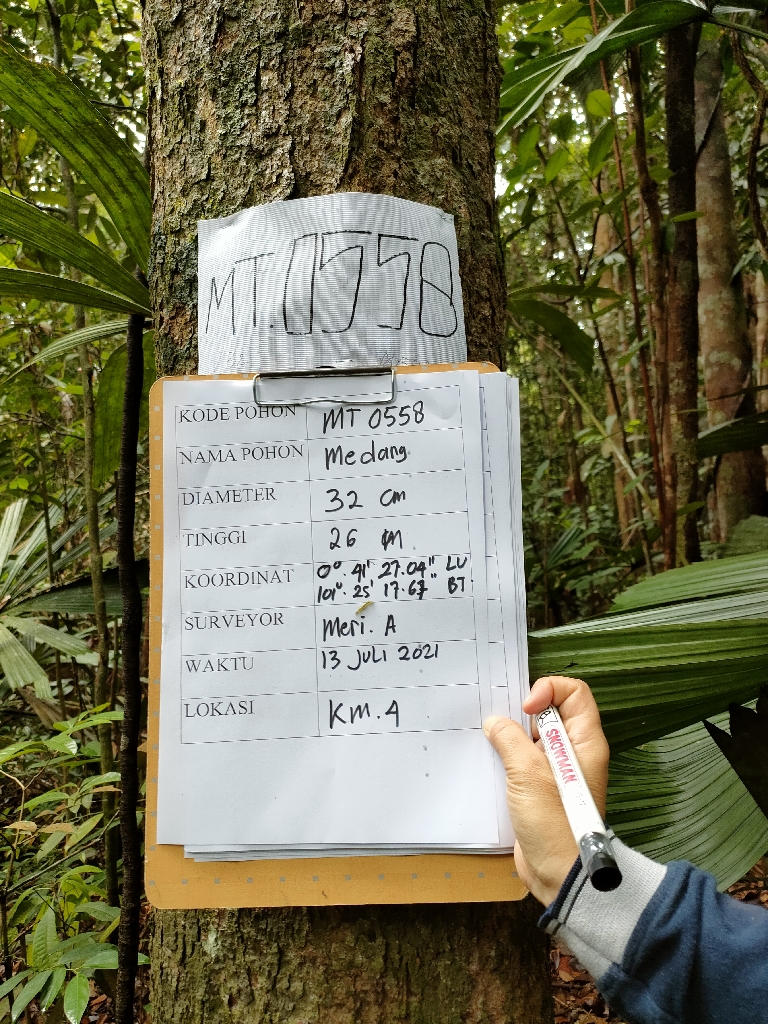 MT.0558
KODE POHON MT 0558
NAMA POHON Medang
DIAMETER 32 cm
TINGGI 26 m
KOORDINAT 0° 41' 27.04" LU
101° 25' 17.67" BT
SURVEYOR Meri. A
WAKTU 13 JULI 2021
LOKASI KM.4
SNOWMAN